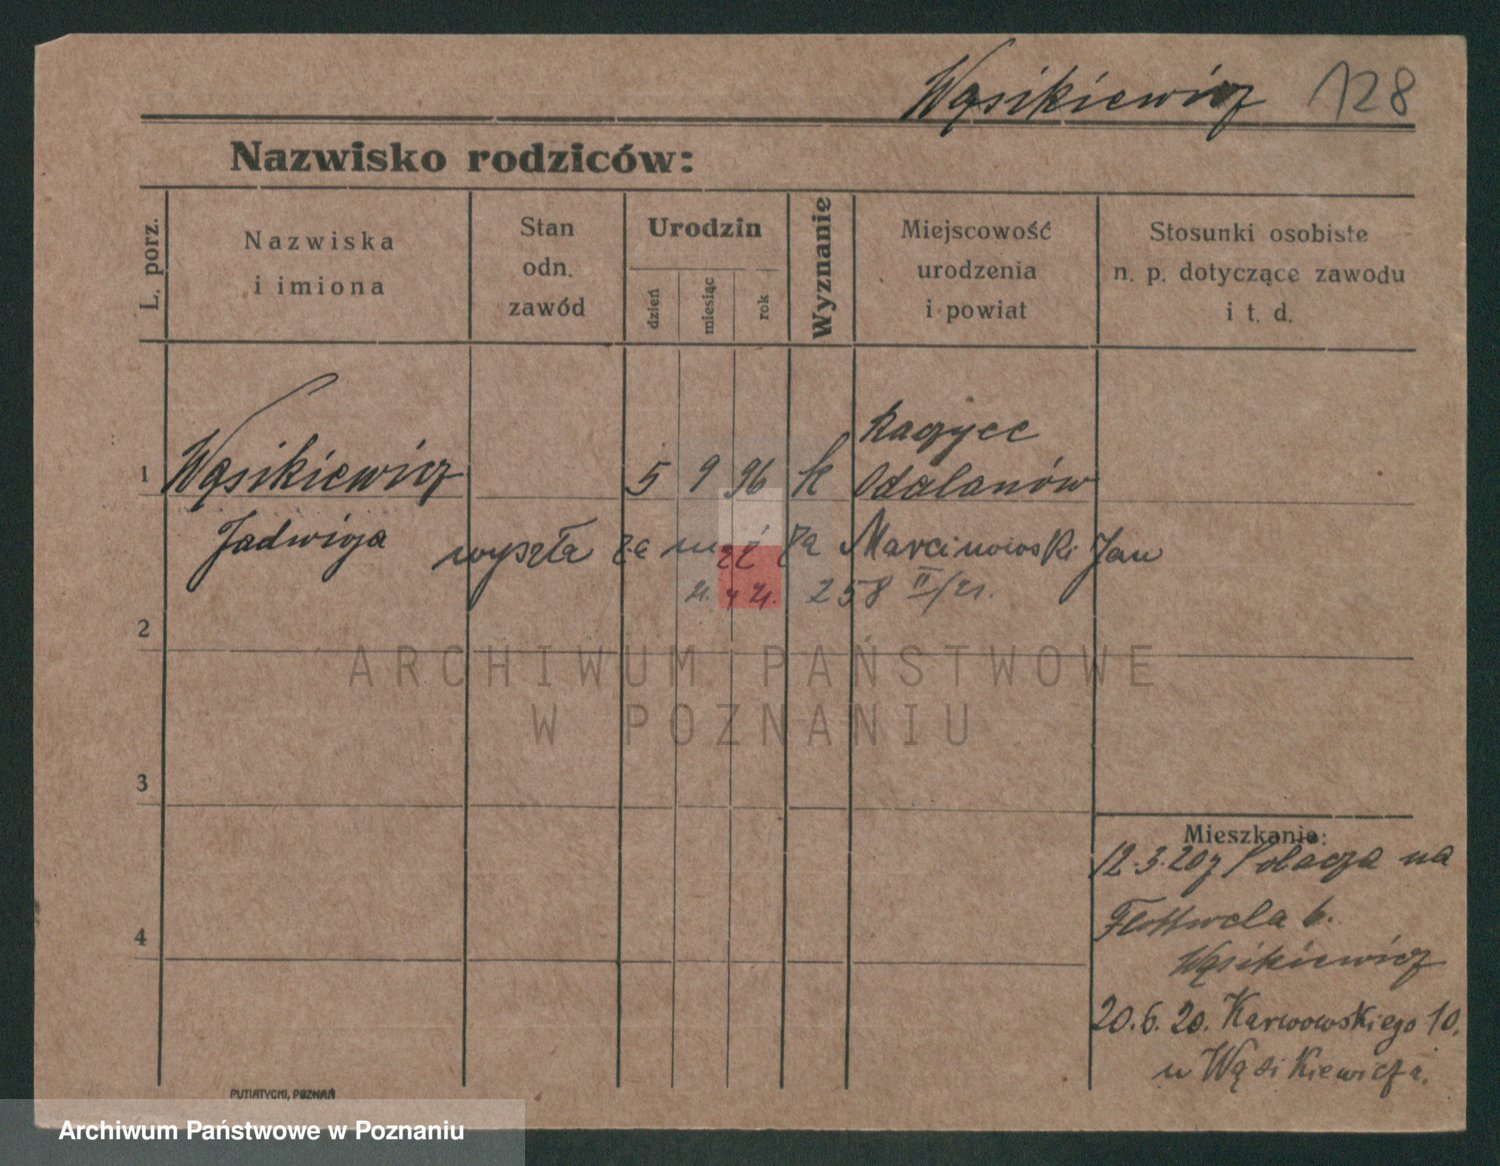 Wąsikiewicz 128
Nazwisko rodziców:
L. porz.
Nazwiska
i imiona
Stan
odn.
zawód
Urodzin
dzień
miesiąc
rok
Wyznanie
Miejscowość
urodzenia
i powiat
Stosunki osobiste
n. p. dotyczące zawodu
i t. d.
1 Wąsikiewicz 5 9 96 k
Odalanów
Jadwiga wyszła za mąż za Marcinowski Jan
258 II/21.
2
ARCHIWUM PAŃSTWOWE
W POZNANIU
3
Mieszkanie:
12.3.20 z Polacza na
Flottwela 6.
4
Wąsikiewicz
20.6.20. Karwowskiego 10.
u Wąsikiewicza.
PUTIATYCKI, POZNAŃ
Archiwum Państwowe w Poznaniu